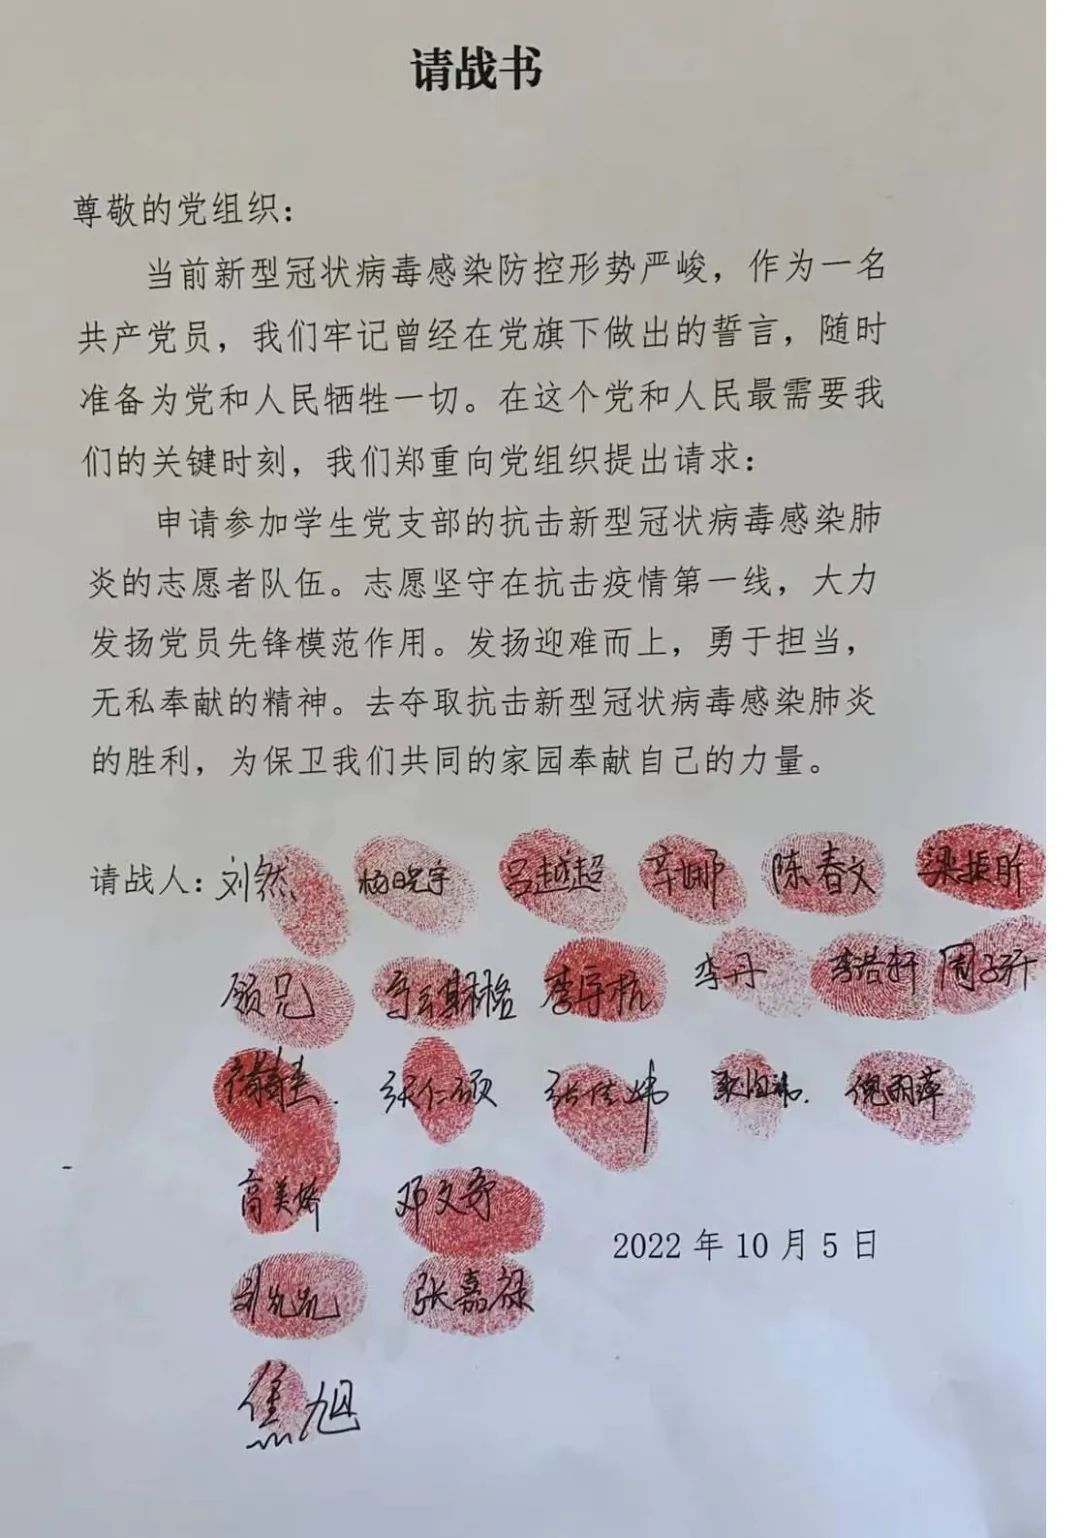 请战书
尊敬的党组织：
当前新型冠状病毒感染防控形势严峻，作为一名
共产党员，我们牢记曾经在党旗下做出的誓言，随时
准备为党和人民牺牲一切。在这个党和人民最需要我
们的关键时刻，我们郑重向党组织提出请求：
申请参加学生党支部的抗击新型冠状病毒感染肺
炎的志愿者队伍。志愿坚守在抗击疫情第一线，大力
发扬党员先锋模范作用。发扬迎难而上，勇于担当，
无私奉献的精神。去夺取抗击新型冠状病毒感染肺炎
的胜利，为保卫我们共同的家园奉献自己的力量。
请战人：刘然 杨晓宇 吕越超 辛娜 陈春文 梁振昕
李宇航 李丹 李浩轩
张仁硕 张佳炜 倪雨萍
高美娇 邓文予
2022 年 10 月 5 日
张嘉禄
焦旭